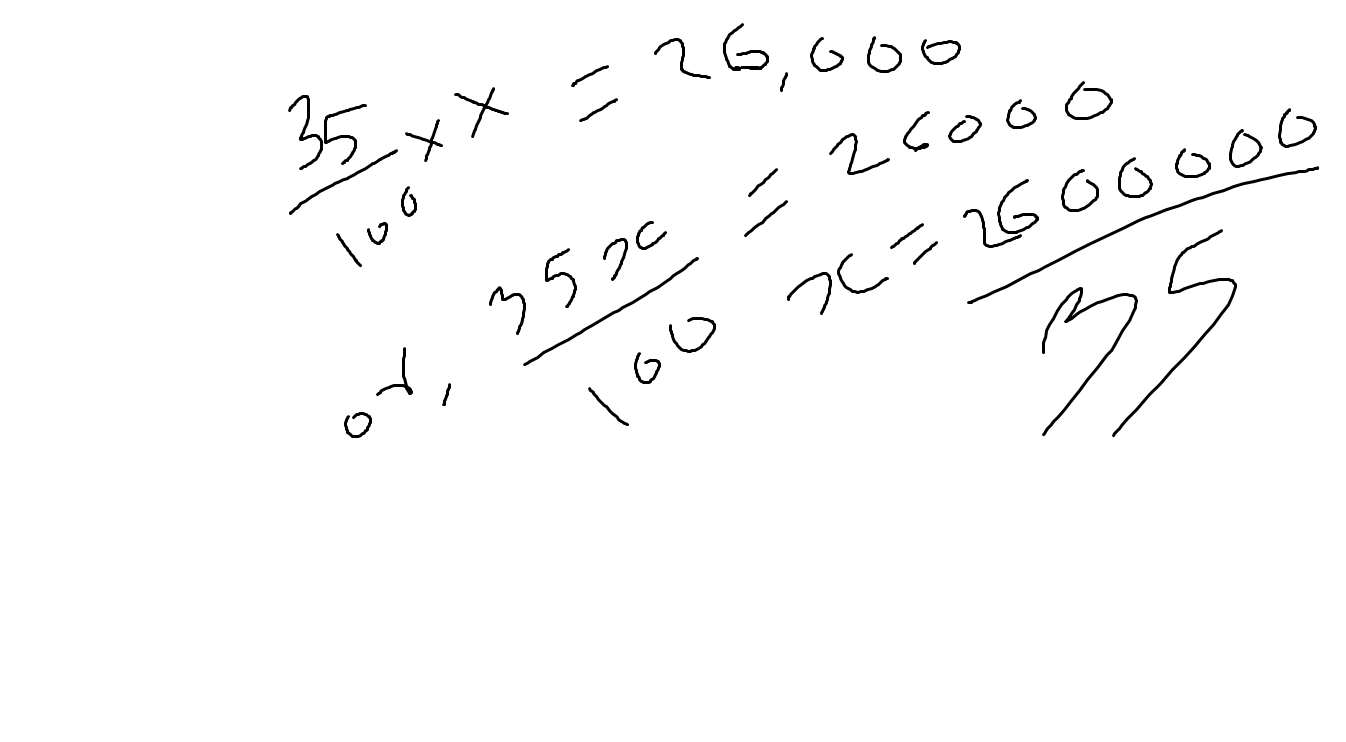 35/100 × x = 26,000
or, 35x/100 = 26000
x = 2600000/35